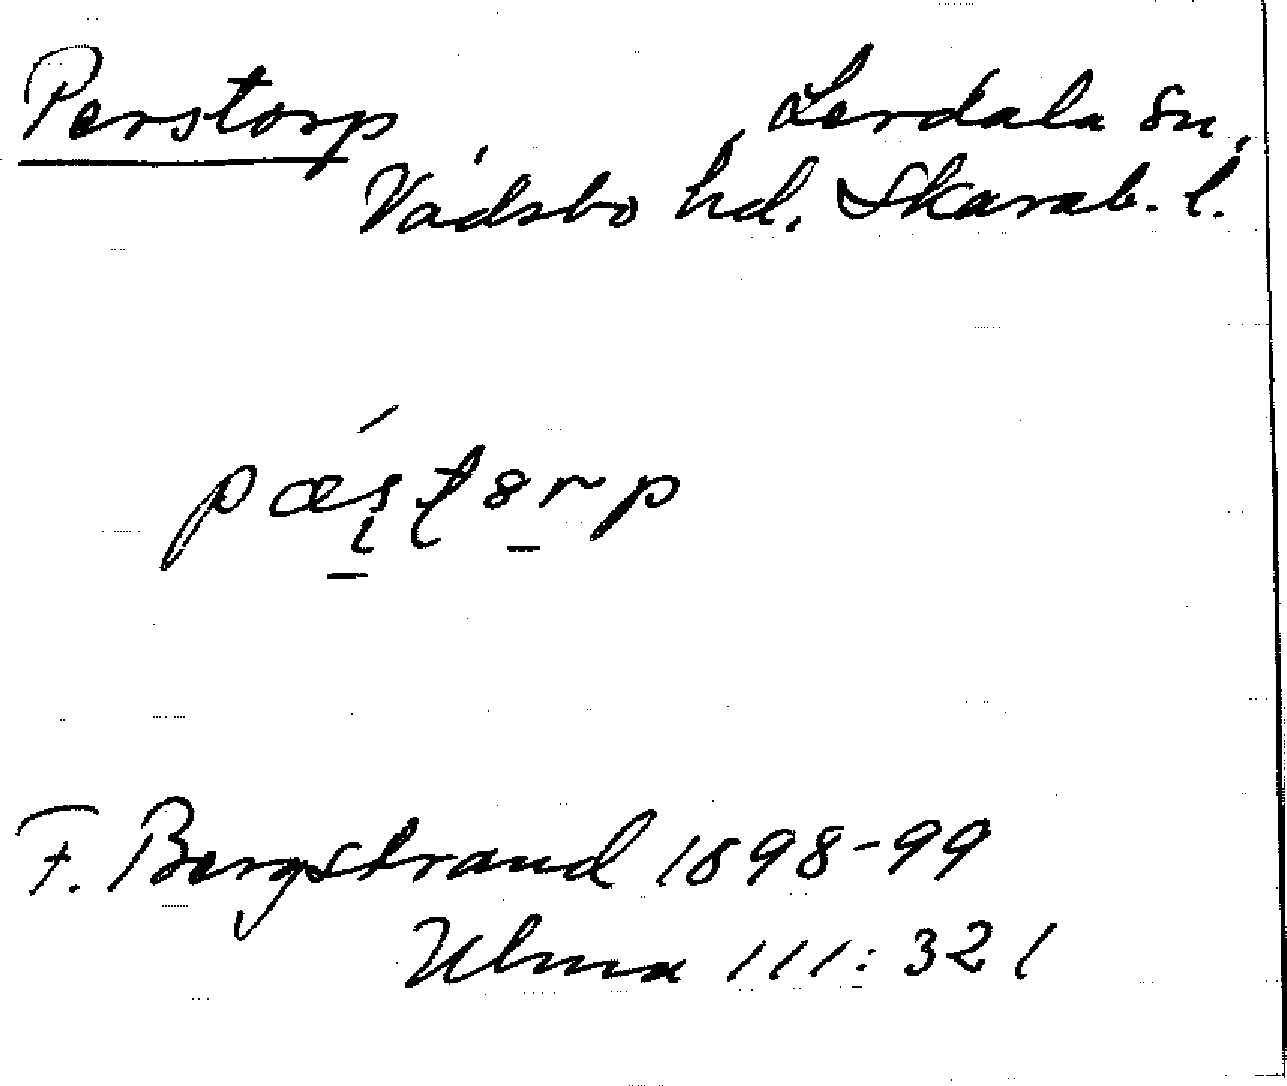 Perstorp Lerdala sn,
Vadsbo hd. Skarab. l.
pæʂʈɵrp
F. Bergstrand 1898-99
Ulma 111:321